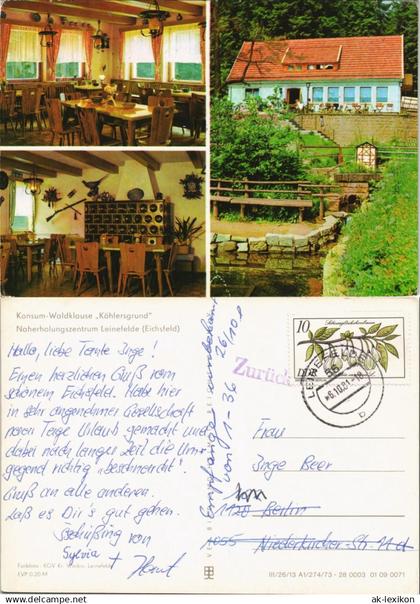 Konsum-Waldklause „Köhlersgrund"
Naherholungszentrum Leinefelde (Eichsfeld)
Hallo, liebe Tante Inge!
Einen herzlichen Gruß vom
schönem Eichsfeld. Habe hier
in sehr angenehmer Gesellschaft
paar Tage Urlaub gemacht und
dabei nach langer Zeit die Um-
gegend richtig „beschnarcht".
Gruß an alle anderen.
Laß es Dir's gut gehen.
Tschüßing von
Sylvia + Horst
Farbfoto: KGV Kr. Worbis, Leinefelde
EVP 0.20 M
Empfänger unbekannt
von 1-36 26/10 8
Zurück
10
DDR
6.10.81-18
Frau
Inge Beer
1120 Berlin
1055 Niederkirchner-Str.
III/26/13 A1/274/73 - 28 0003 01 09 0071
© ak-lexikon
ak-lexikon.com